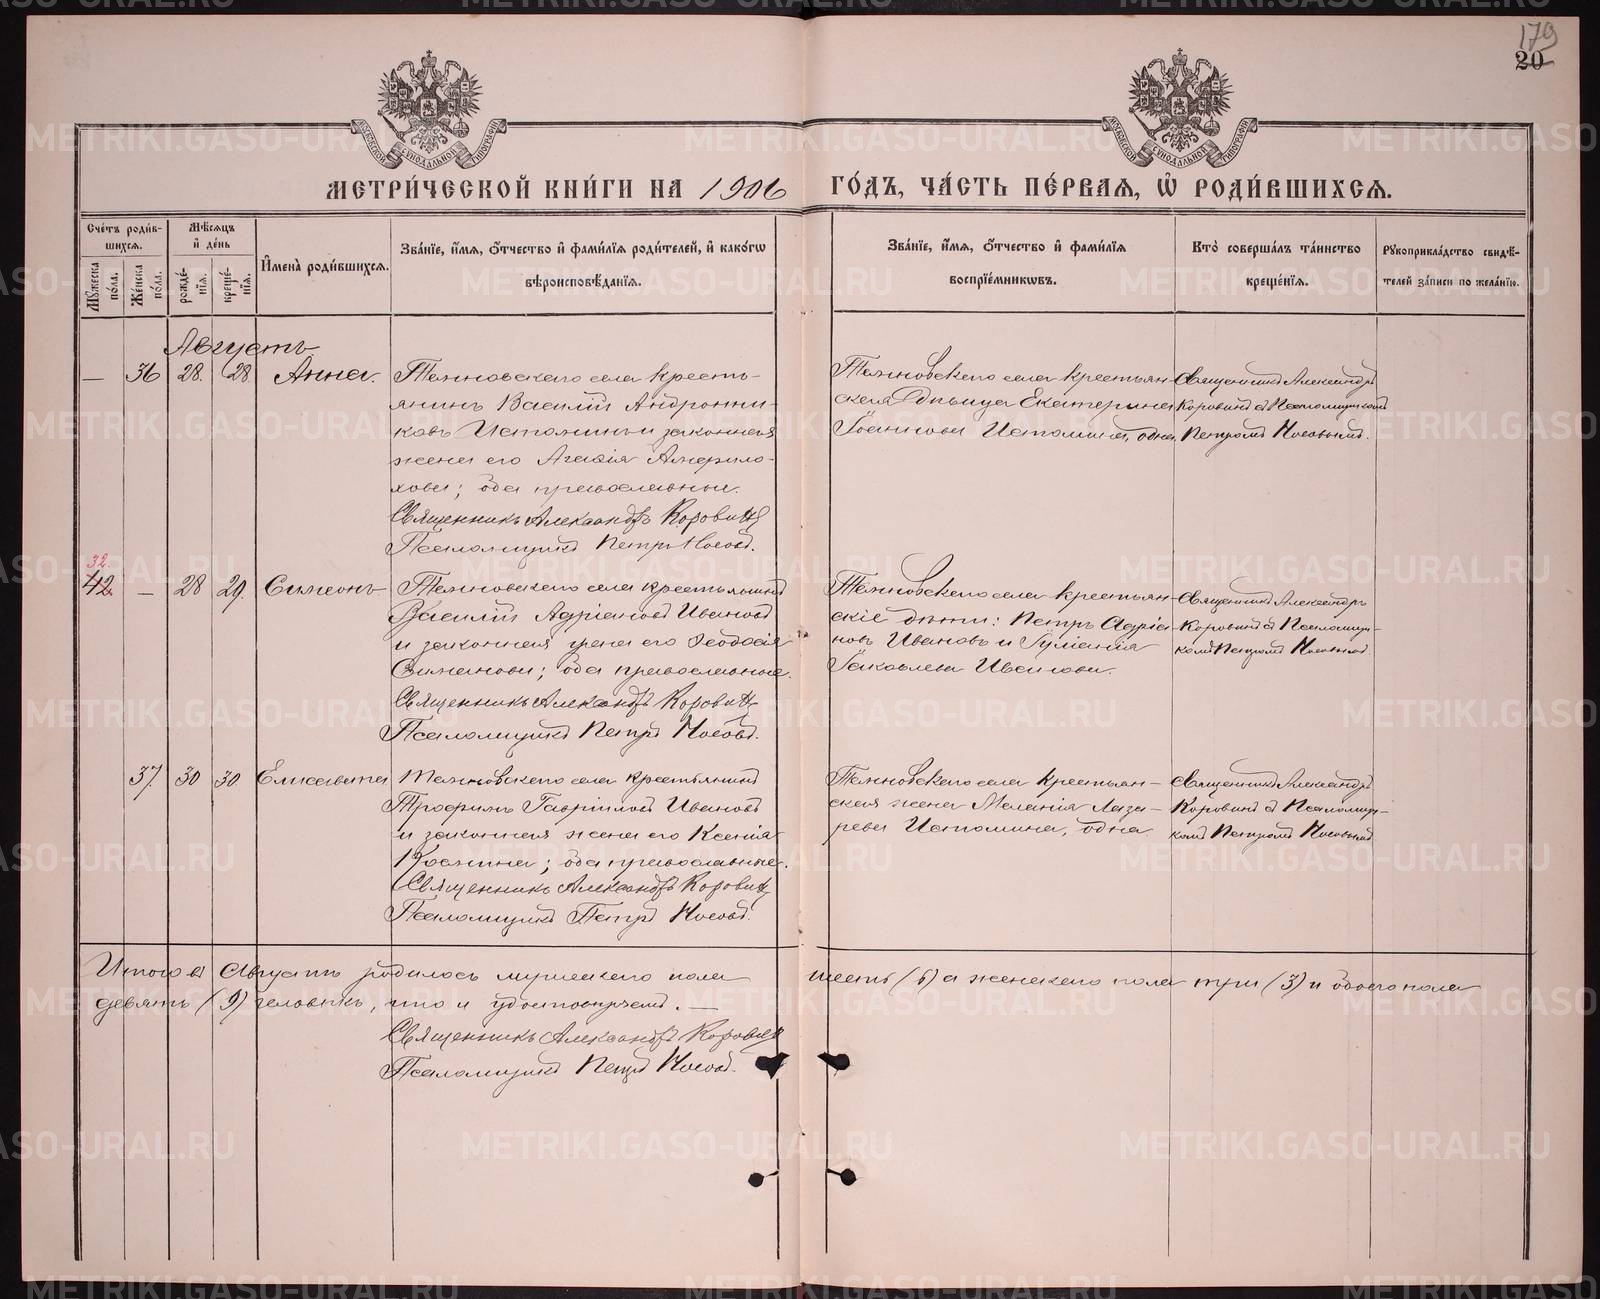 179
20
МЕТРИ́ЧЕСКОЙ КНИ́ГИ НА 1906 ГО́ДЪ, ЧА́СТЬ ПЕ́РВАЯ, Ѡ҆ РОДИ́ВШИХСѦ.
Сче́тъ роди́в-
шихсѧ.
Мꙋ́жеска по́ла.
Же́нска по́ла.
Мѣ́сѧцъ
и҆ де́нь
рожде́нїѧ.
креще́нїѧ.
И҆мена̀ роди́вшихсѧ.
Зва́нїе, и҆́мѧ, ѻ҆́тчество и҆ фами́лїѧ роди́телей, и҆ како́гѡ
вѣроисповѣ́данїѧ.
Зва́нїе, и҆́мѧ, ѻ҆́тчество и҆ фами́лїѧ
воспрїе́мникѡвъ.
Кто̀ соверша́лъ та́инство
креще́нїѧ.
Рꙋкоприкла́дство свидѣ́-
телей за́писи по жела́нїю.
Августъ
— 36 28. 28 Анна.
села кресть-
янинъ Василій Андрони-
ковъ Истоминъ и законная
жена его Агафія Амфило-
хова; оба православные.
Священникъ Александръ Коровинъ
Псаломщикъ Петръ Носовъ.
села крестьян-
ская дѣвица Екатерина
Іоаннова Истомина, одна
Священникъ Александръ
Коровинъ съ Псаломщикомъ
Петромъ Носовымъ.
32.
42. — 28 29. Симеонъ
села крестьянинъ
Василій Адріановъ Ивановъ
и законная жена его Ѳеодосія
Симонова; оба православные.
Священникъ Александръ Коровинъ
Псаломщикъ Петръ Носовъ.
села крестьян-
скіе дѣти: Петръ Адріа
новъ Ивановъ и Іуліанія
Іаковлева Иванова.
Священникъ Александръ
Коровинъ съ Псаломщи-
комъ Петромъ Носовымъ.
37. 30 30. Елисавета
села крестьянинъ
Трофимъ Гавріиловъ Ивановъ
и законная жена его Ксенія
Козмина; оба православные.
Священникъ Александръ Коровинъ
Псаломщикъ Петръ Носовъ.
села крестьян-
ская жена Меланія Лаза-
рева Истомина, одна
Священникъ Александръ
Коровинъ съ Псаломщи-
комъ Петромъ Носовымъ
Итого въ Августѣ родилось мужескаго пола шесть (6) а женскаго пола три (3) и обоего пола
девять (9) человѣкъ, что и удостовѣряемъ. —
Священникъ Александръ Коровинъ
Псаломщикъ Петръ Носовъ.
METRIKI.GASO-URAL.RU